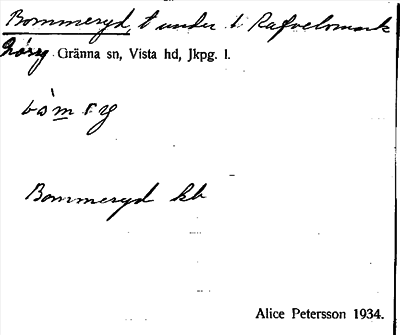 Bommeryd, t under 1 Rafvelsmark
Gränna sn, Vista hd, Jkpg. l.
Bommeryd kb
Alice Petersson 1934.